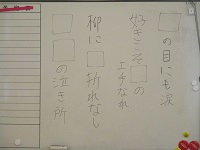 □の目にも涙
好きこそ□の
上手なれ
柳に□折れなし
□□の泣き所